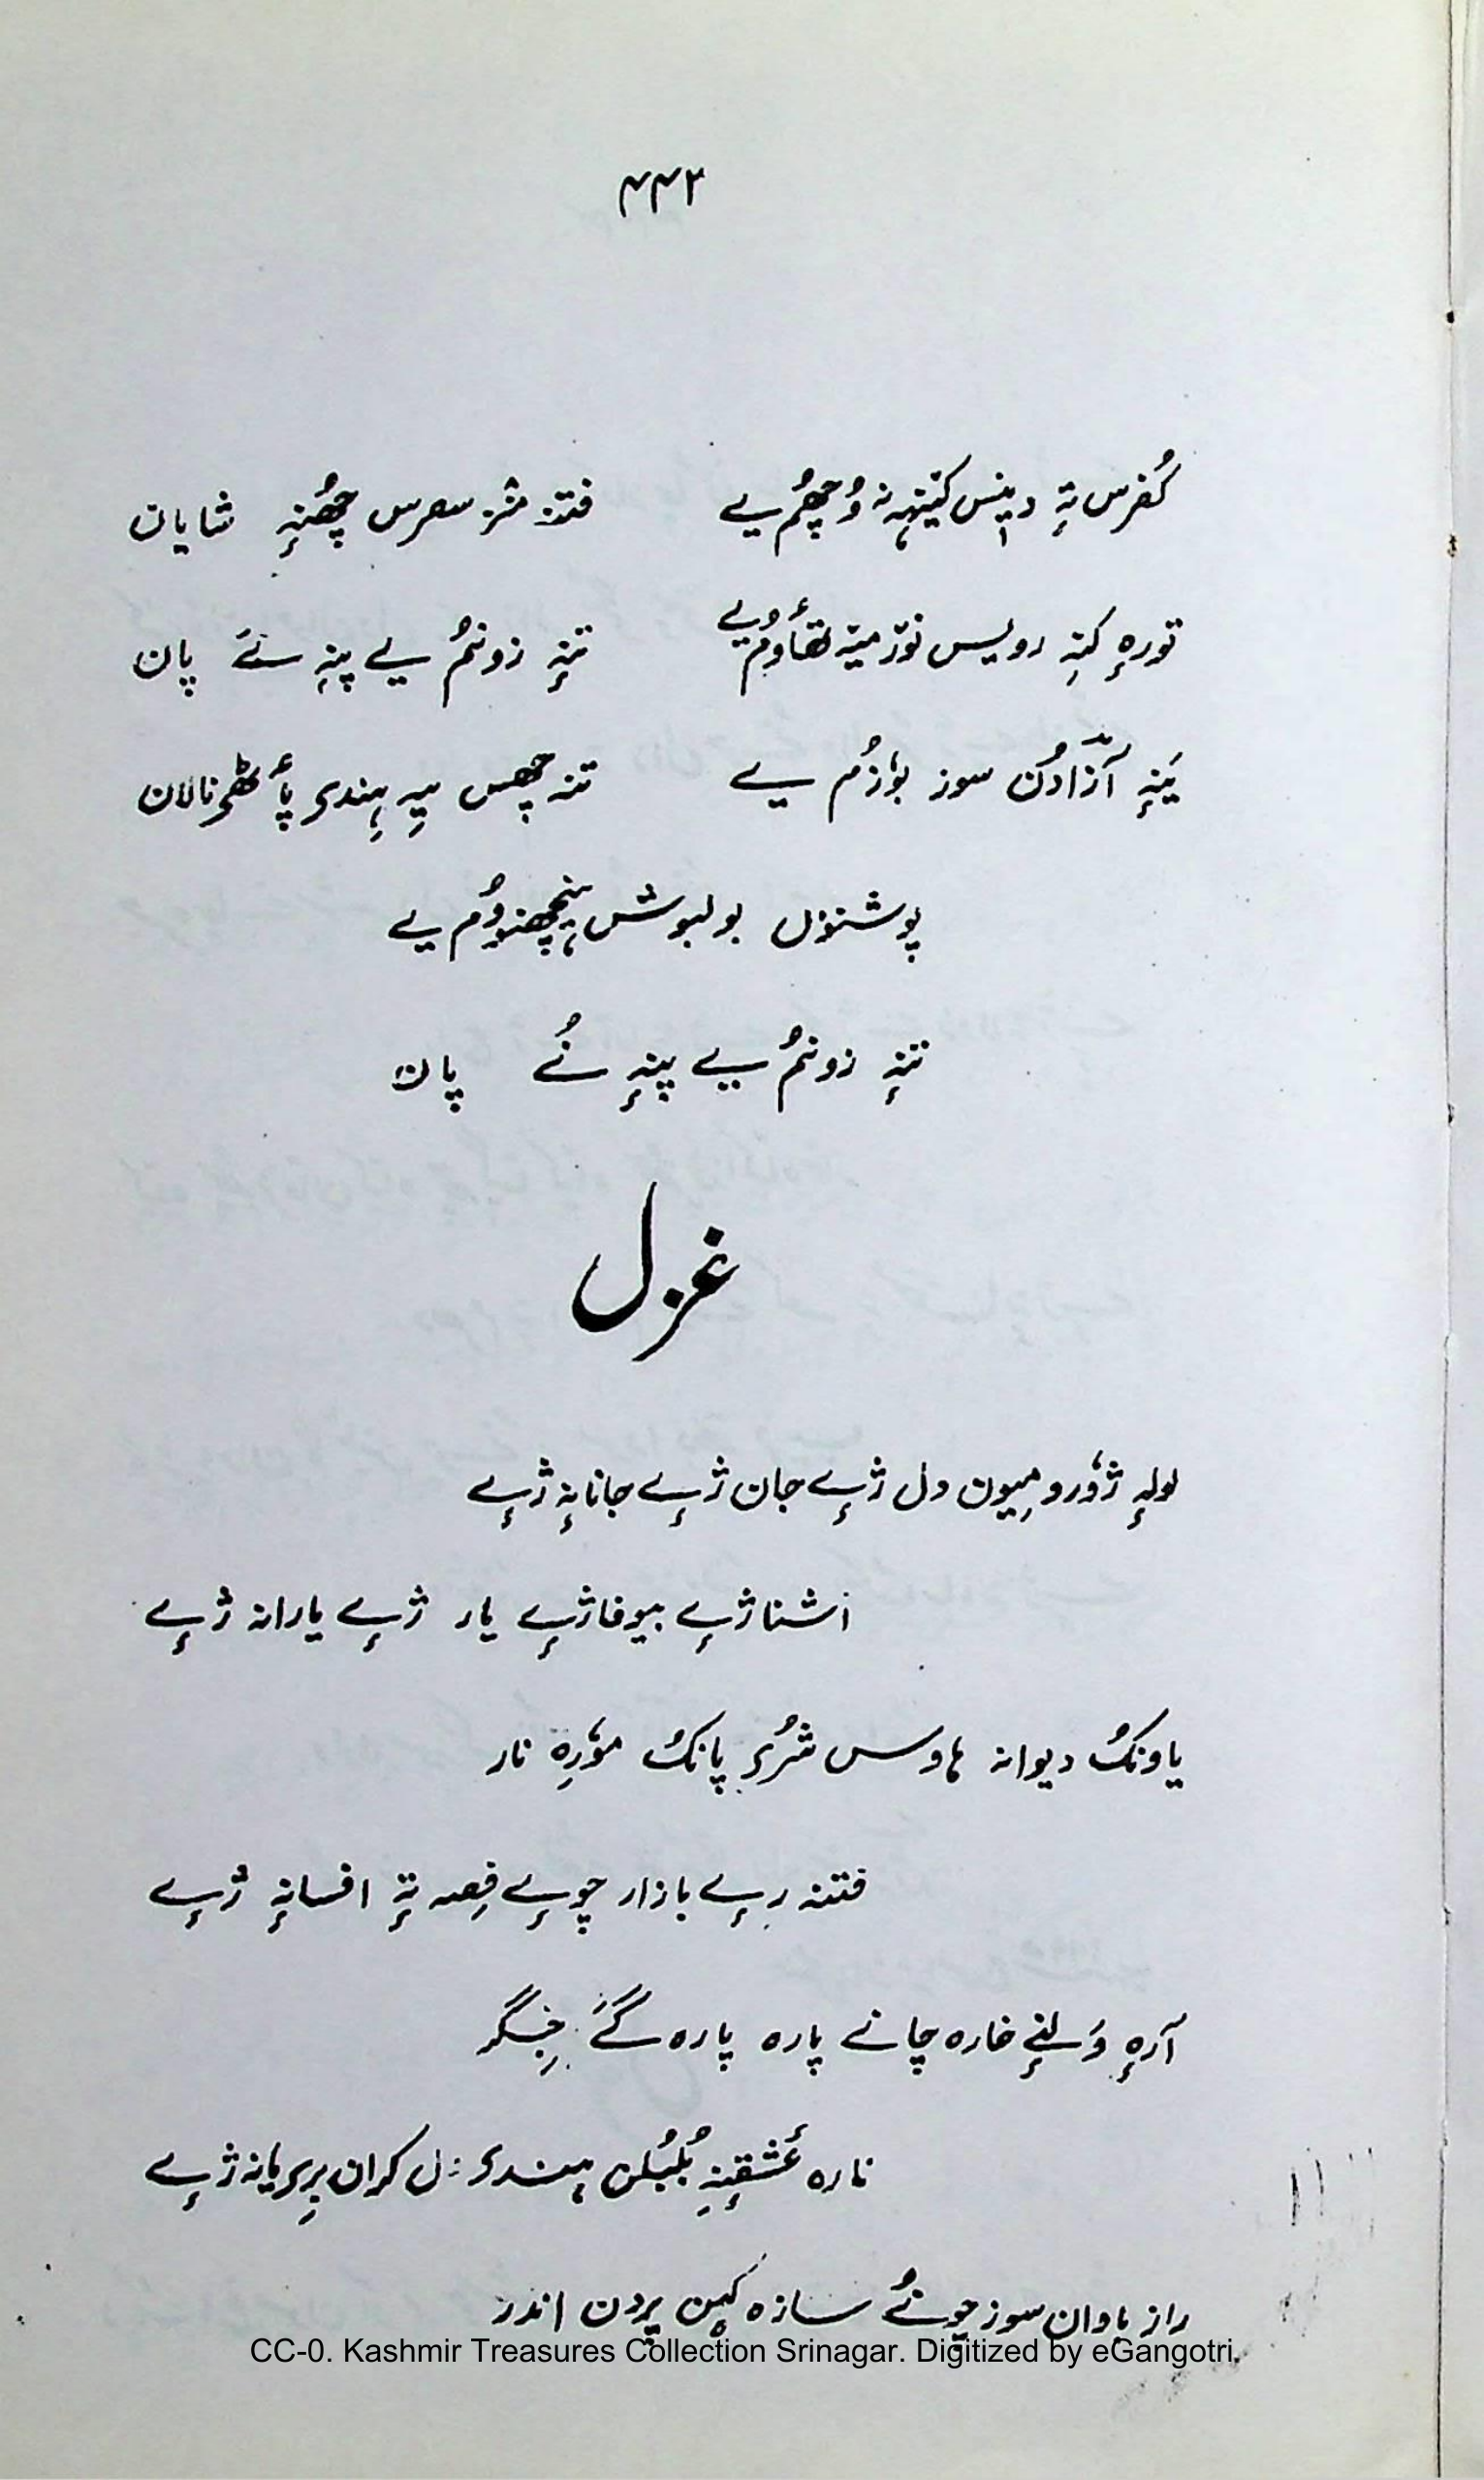 ۴۴۲
کُفرس تہٕ دینس کینٛہہ نہ وُچھُم یے فتنہ مژر سعرس چھُنہٕ شایان
تورہٕ کنہِ رویس نوٗر میتہ تھأوُم یے تنہٕ زونمُ یے پنہِ نےٚ پان
یَنہٕ آزادُن سوز بوٗزُم یے تنہ چھس یِہ ہِندی پأٹھی نالان
پوشنوٗل بولبوش ہیٚچھنوُوم یے
تنہٕ زونمُ یے پنہٕ نُے پان
غزل
لولہٕ ژوٗرو میون دل ژٕے جان ژٕے جانانہٕ ژٕے
أشنا ژٕے بیوفا ژٕے یار ژٕے یارانہ ژٕے
یاونکُ دیوانہ ہاوس شُرۍ پانکُ موٗرِہ نار
فتنہ رٕے بازار چوٕے قِصہ تہٕ افسانہٕ ژٕے
آرہٕ وَلنہٕ خارہ چانے پارہ پارہ گےٚ جِگر
نارہ عٔشقنہِ بُلبُلن ہِندۍ دِل کران بریانہ ژٕے
راز باوان سوز چونُے سازہ کیٚن پردن اندر
CC-0. Kashmir Treasures Collection Srinagar. Digitized by eGangotri.